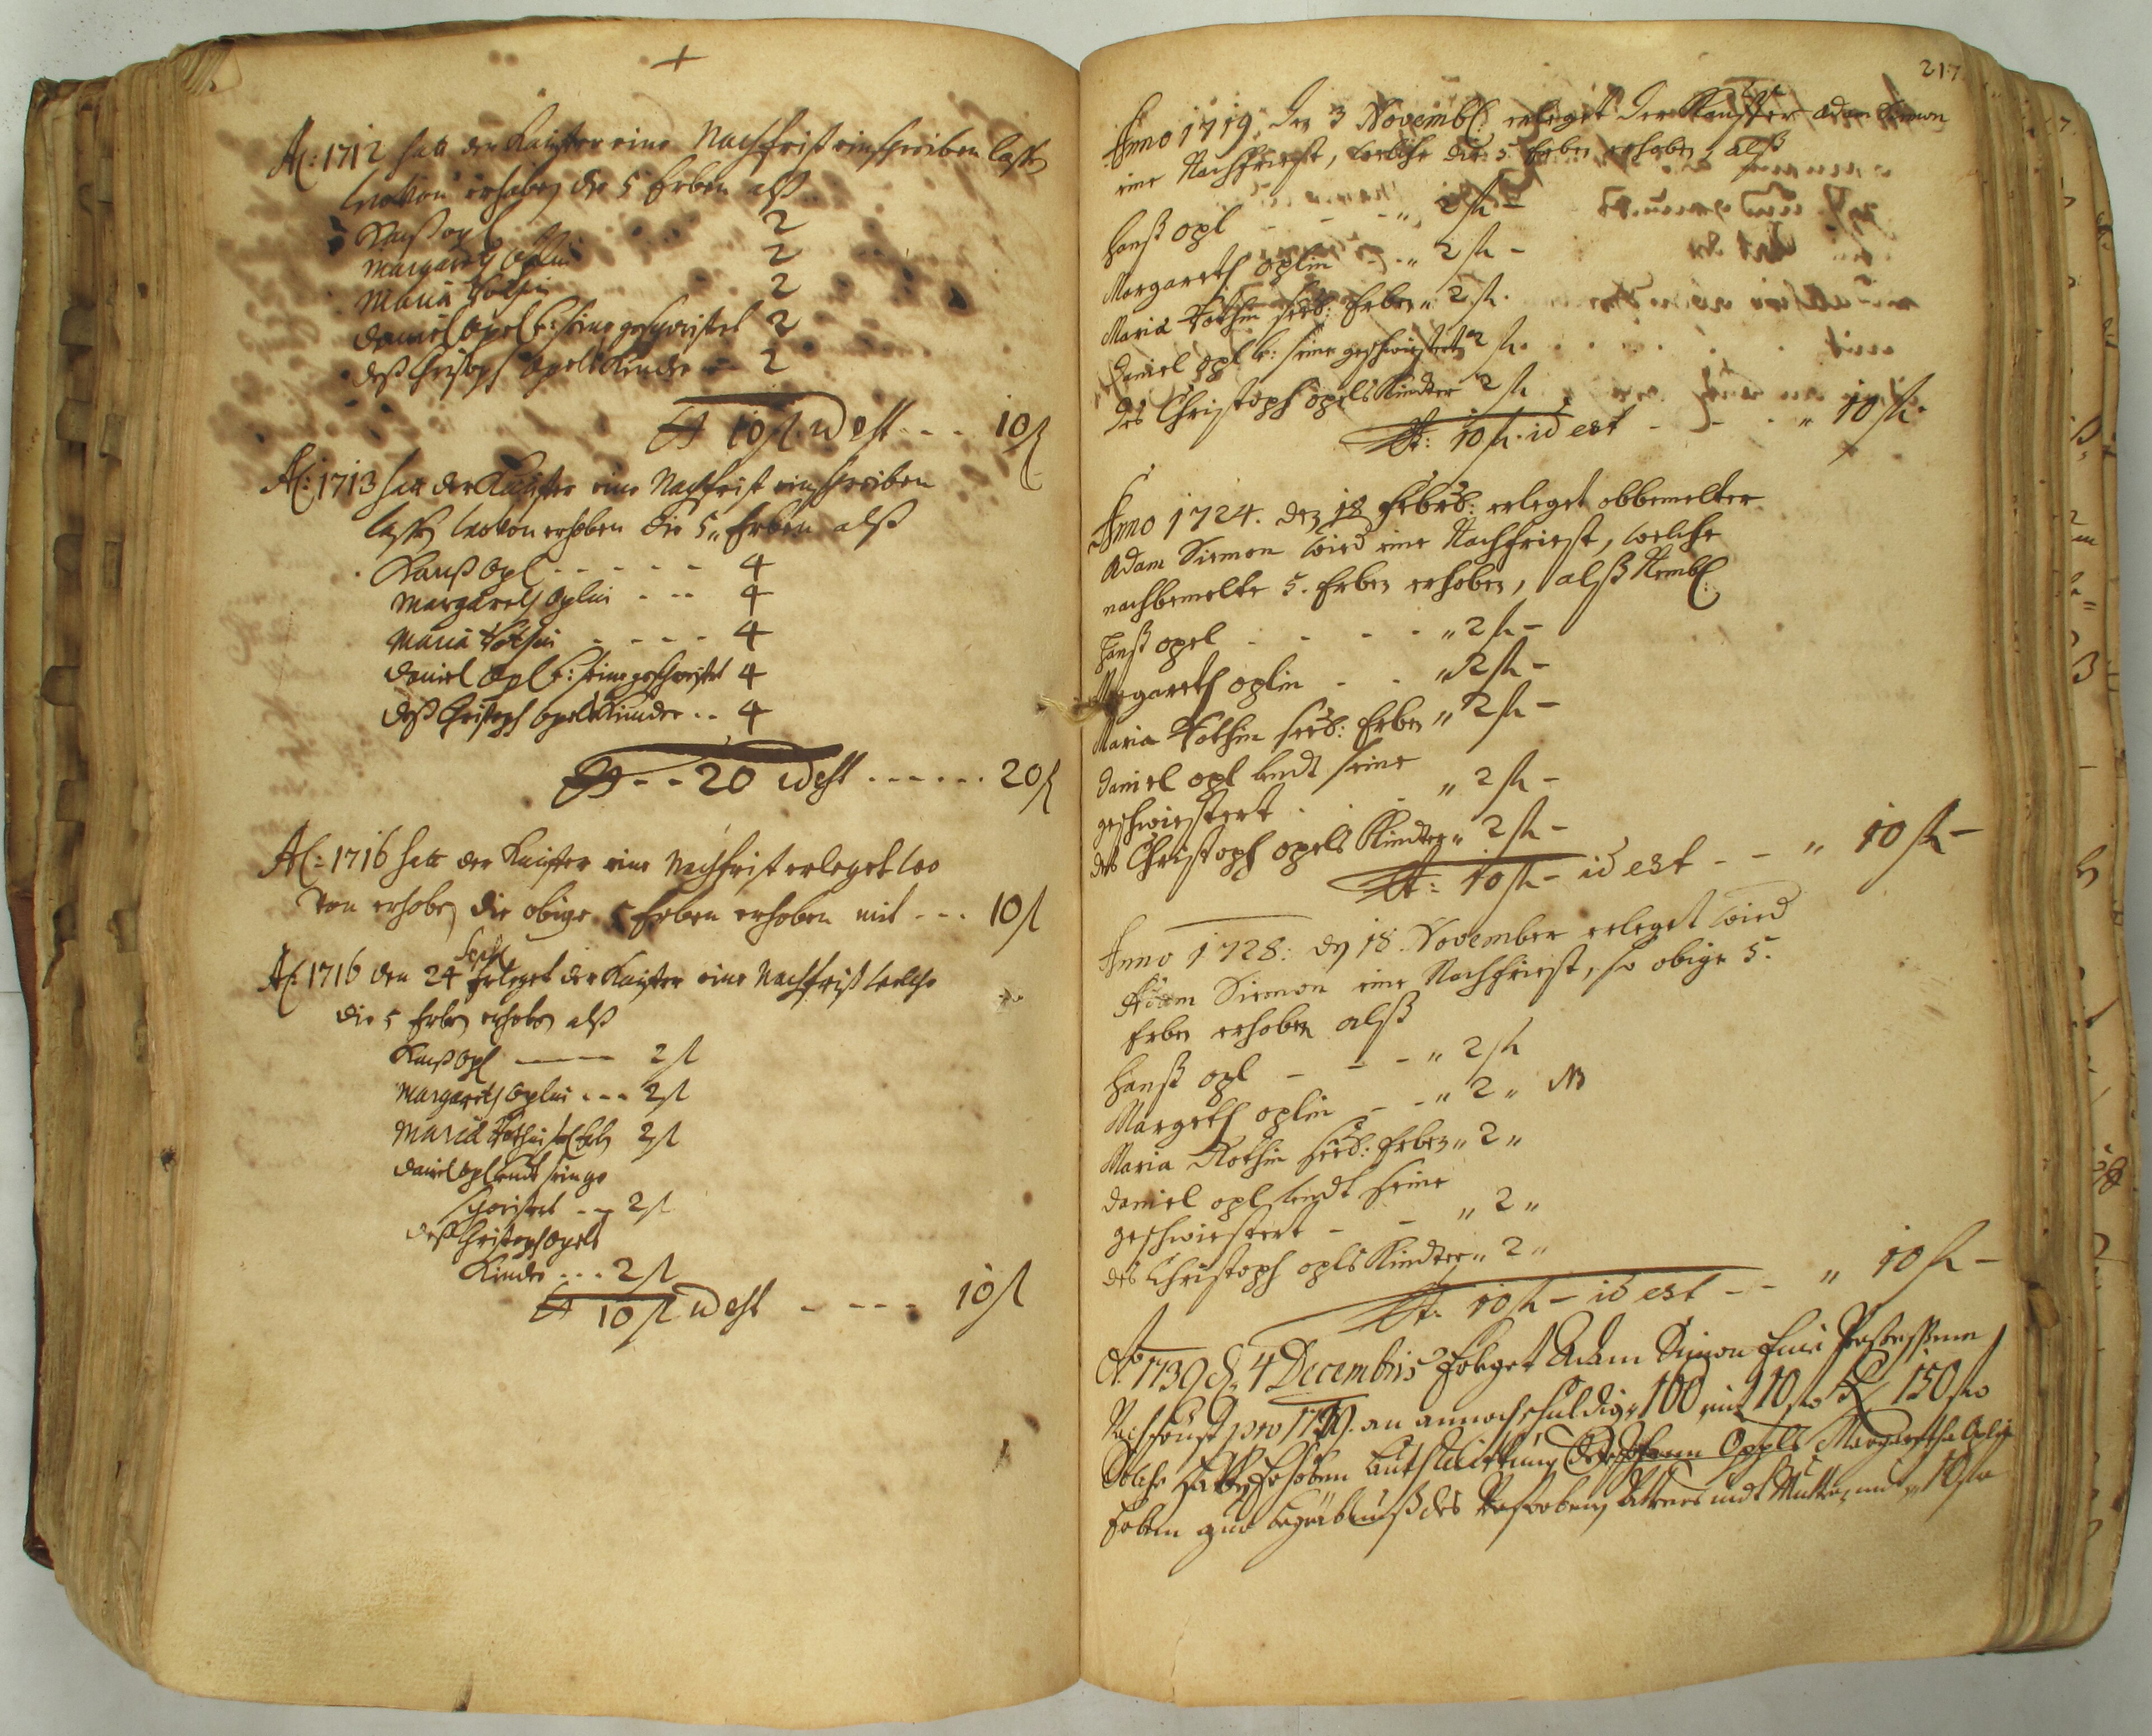 A(o): 1712 hatt der Kauffer eine Nachfrist einschreiben lassen
wovon erhoben die 5 Erben alß
Hanß Opl 2
Margareth Oplin 2
Maria Rothin 2
Daniel Opel v: seine geschwistert 2
deß Christoph Opels Kinder - 2
10 f id est - - - 10 f
A(o): 1713 hatt der Kauffer eine Nachfrist einschreiben
lassen wovon erhoben die 5 Erben alß
Hanß Opl - - - - - 4
Margareth Oplin - - - 4
Maria Rothin - - - - 4
Daniel Opl v: seine geschwistert 4
deß Christoph Opels Kinder - - 4
- - 20 id est - - - - - - 20 f
A(o): 1716 hatt der Kauffer eine Nachfrist erleget wo
von erhoben die obige 5 Erben erhoben mit - - - 10 f
A(o) 1716 den 24 Sept erleget der Kauffer eine Nachfrist welche
die 5 Erben erhoben alß
Hanß Opl - 2 f
Margareth Oplin - - - 2 f
Maria Rothin Erben 2 f
Daniel Opl undt seine ge
schwistert - - 2 f
deß Christoph Opels
Kinder - - - 2 f
10 f id est - - - - 10 f
217
Anno 1719, den 3 Novemb: erleget der Kauffer Adam Siemon
eine Nachfriest, welche die 5. Erben erhoben, alß
Hanß opl - - „ 2 fl -
Margareth oplin - - „ 2 fl -
Maria Rothin seel: Erben „ 2 fl.
Daniel opl v: seine geschwistert 2 fl.
des Christoph opels Kindter 2 fl
10 fl. id est - - - „ 10 fl.
Anno 1724. den 18 Febr: erleget obbemelter
Adam Siemon wied eine Nachfriest, welche
nachbemelte 5. Erben erhoben, alß Nembl:
Hanß opel - - - - „ 2 fl -
Margareth oplin - - „ 2 fl -
Maria Rothin seel: Erben „ 2 fl -
Daniel opl undt seine
geschwiestert - - „ 2 fl -
des Christoph opels Kindter „ 2 fl -
10 fl - id est - - „ 10 fl -
Anno 1728: den 18. November erleget wied
Adam Siemon eine Nachfriest, so obige 5.
Erben erhoben alß
Hanß opl - - - „ 2 fl
Margeth oplin - - „ 2 „ NB
Maria Rothin seel: Erben „ 2 „
Daniel opl undt seine
geschwiestert - - „ 2 „
des Christoph opls Kindter „ 2 „
10 fl - id est - - „ 10 fl -
Ao 1739 d. 4 Decembris Erleget Adam Simon
Nachfrist pro 1739. an annoch schuldig 100 mit 10 150
Solche Erhoben Opels Margaretha Oplin
Erben des undt Mutter mit 10